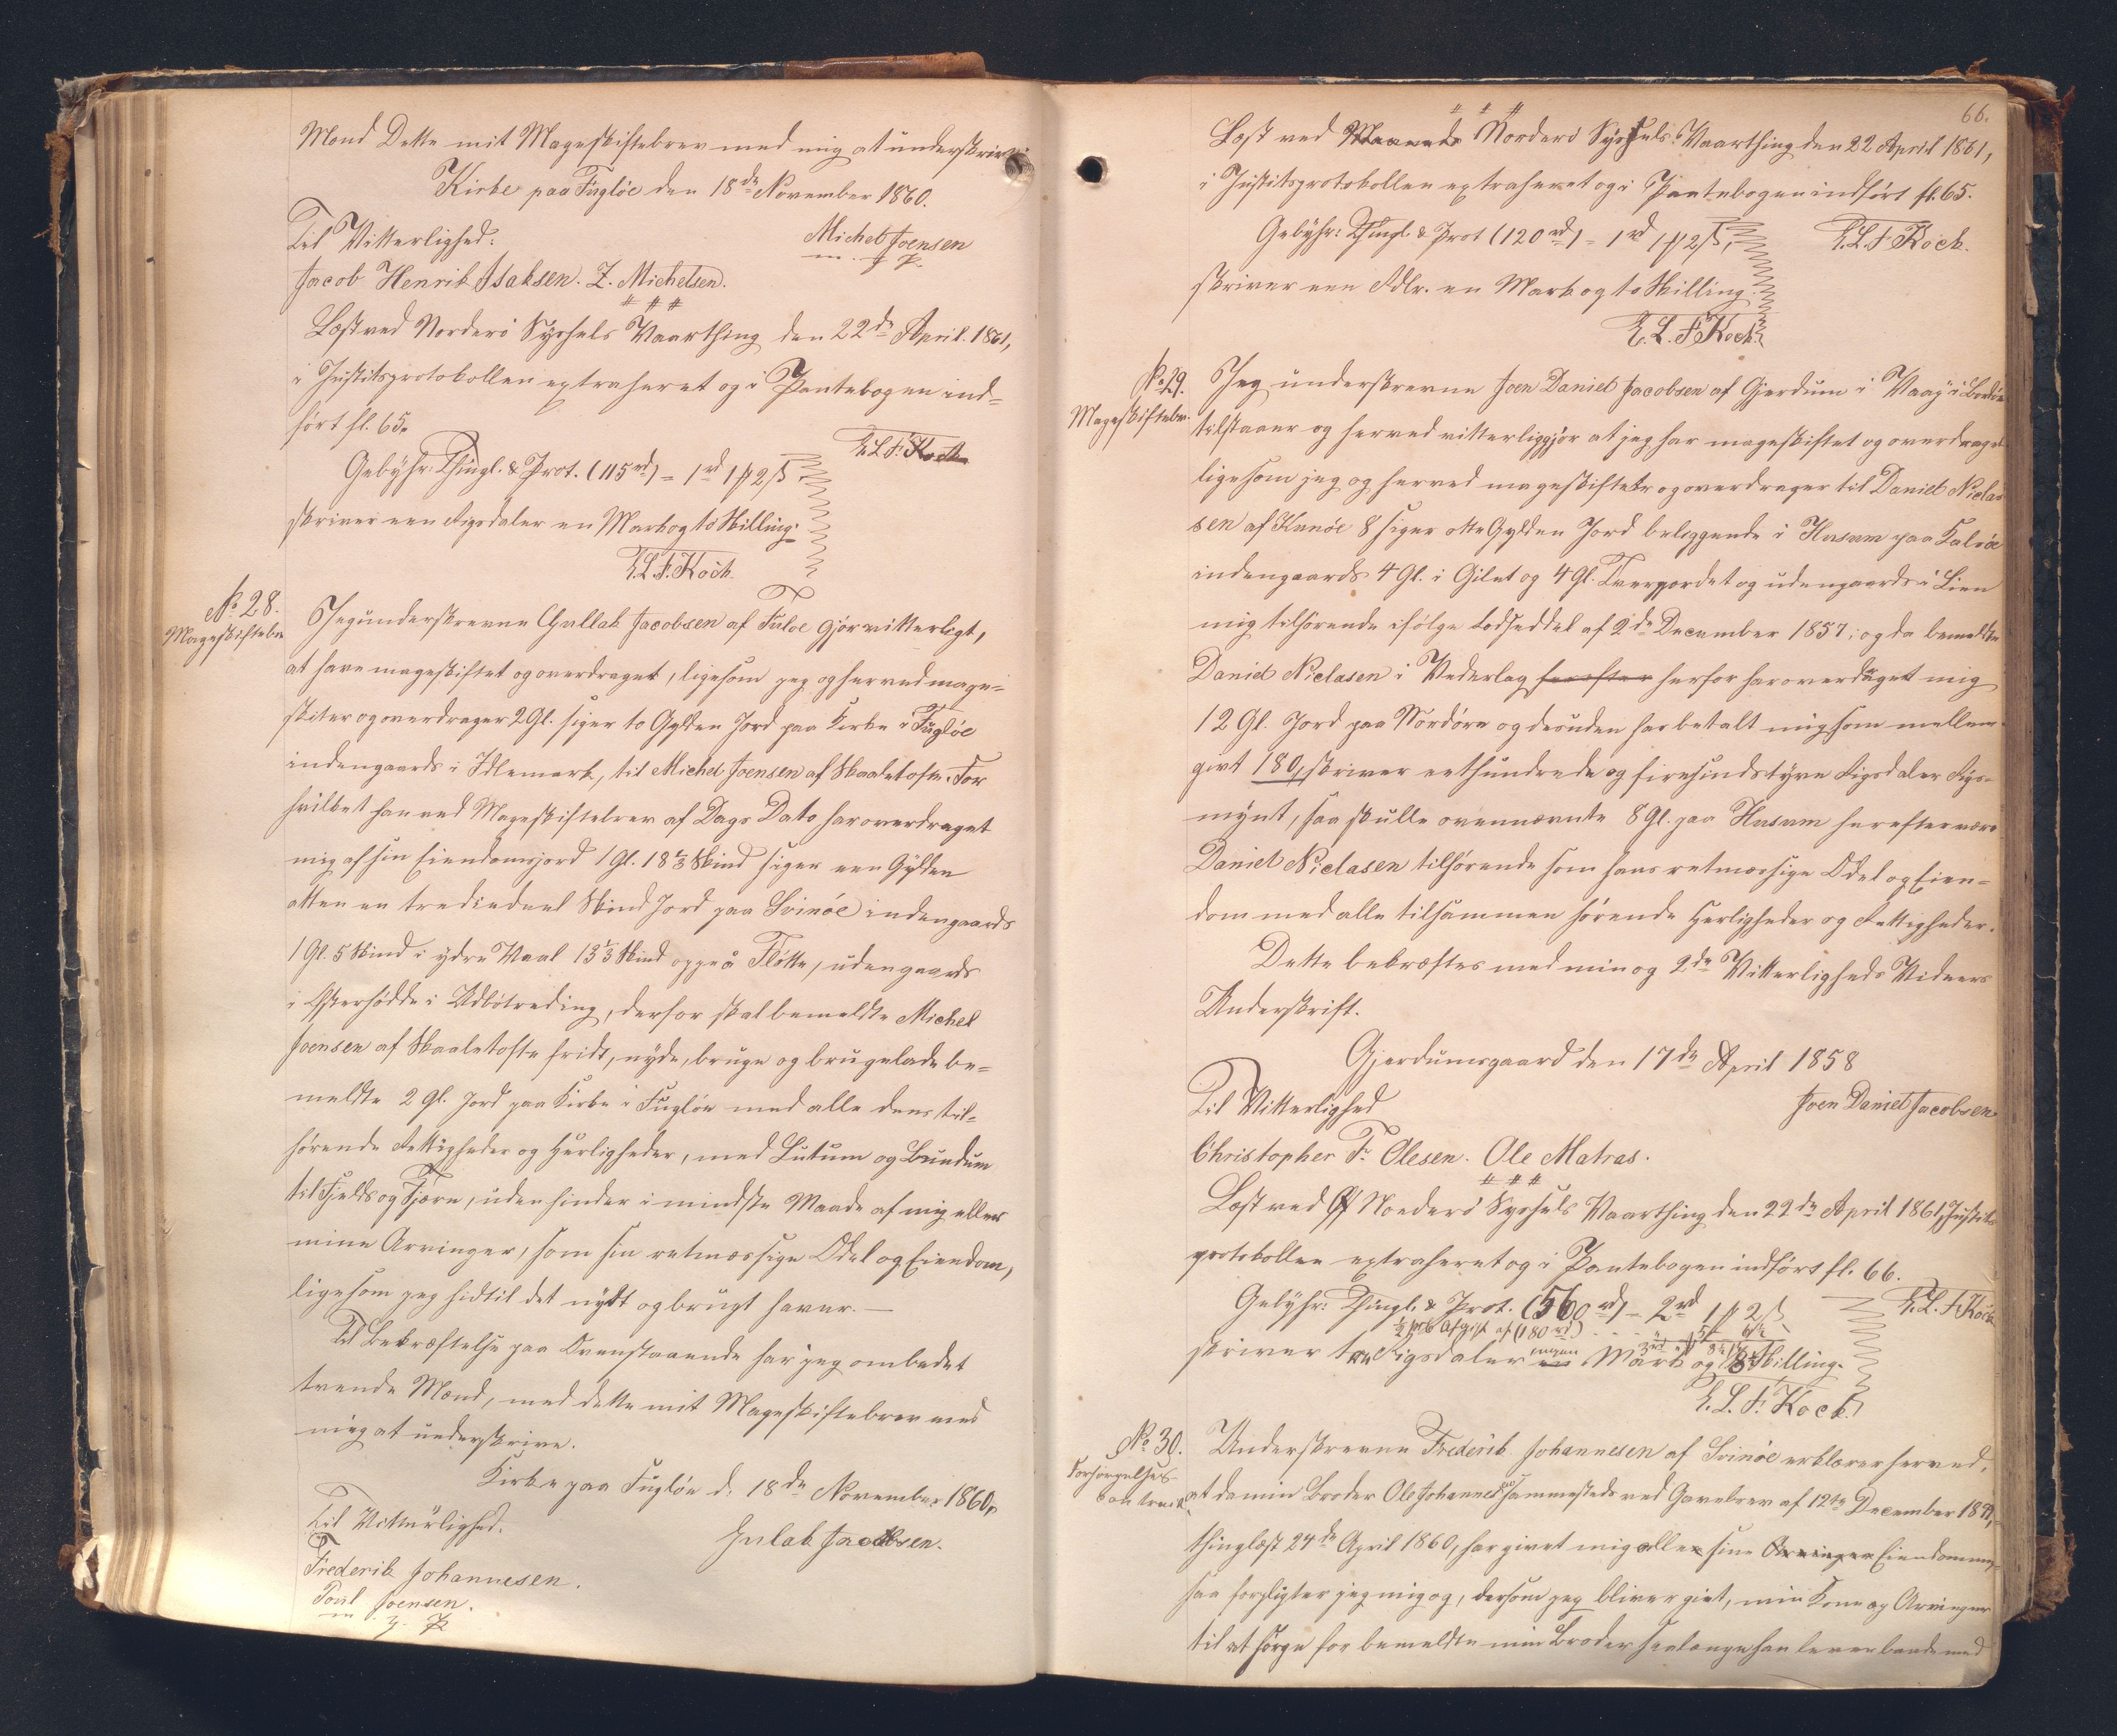 Mænd Dette mit Mageskiftebrev med mig at underskrive
Kirke paa Fugløe den 18de November 1860.
Til Vitterlighed: Michel Joensen
m. f. P.
Jacob Henrik Isaksen. Z. Michelsen.
Læst ved Norderö Syssels Vaarthing den 22de April 1861,
i Justitsprotokollen extraheret og i Pantebogen ind-
fört fl. 65.
E.L.F. Koch
Gebyhr: Thingl. & Prot. (115 rd) = 1 rd 1 ₻ 2 ß.
skriver een Rigsdaler en Mark og to Skilling.
E.L.F. Koch.
No 28.
Mageskiftebr.
Jeg underskrevne Gullak Jacobsen af Fuloe gjör vitterligt,
at have mageskiftet og overdraget, ligesom jeg og herved mage-
skifter og overdrager 2 Gl. siger to Gylden Jord paa Kirke i Fugløe
indengaards i Idlemark, til Michel Joensen af Skaaletofte. For
hvilket han ved Mageskiftebrev af Dags Dato har overdraget
mig af sin Eiendomsjord 1 Gl. 18 1/3 Skind siger een Gylden
atten en trediedeel Skind Jord paa Svinöe indengaards
1 Gl. 5 Skind i ydre Vaal 13 1/3 Skind oppe á Fløtte, udengaards
i Østerhødde i Udbötreding, derfor skal bemeldte Michel
Joensen af Skaaletofte fridt, nyde, bruge og brugelade be-
meldte 2 Gl. Jord paa Kirke i Fuglöe med alle dens til-
hörende Rettigheder og Herligheder, med Lutum og Lundum
til Fjelds og Fjære, uden hinder i mindste Maade af mig eller
mine Arvinger, som sin retmæssige Odel og Eiendom,
ligesom jeg hidtil det nydt og brugt haver. —
Til Bekræftelse paa Ovenstaaende har jeg ombedet
tvende Mænd, med dette mit Mageskiftebrev med
mig at underskrive.
Kirke paa Fuglöe d. 18de November 1860.
Til Vitterlighed. Gulak Jacobsen.
Frederik Johannesen.
Poul Joensen.
m. f. P.
66.
Læst ved Norderö Syssels Vaarthing den 22 April 1861,
i Justitsprotokollen extraheret og i Pantebogen indfört fl. 65.
Gebyhr: Thingl. & Prot (120 rd) = 1 rd 1 ₻ 2 ß, E.L.F. Koch.
skriver een Rdlr. en Mark og to Skilling.
E.L.F. Koch.
No 29.
Mageskiftebr.
Jeg underskrevne Joen Daniel Jacobsen af Gjerdum i Vaag i Bordöe
tilstaaer og herved vitterliggjör at jeg har mageskiftet og overdraget
ligesom jeg og herved mageskifter og overdrager til Daniel Niclas-
sen af Kunöe 8 siger otte Gylden Jord beliggende i Husum paa Kalsöe
indengaards 4 Gl. i Gilet og 4 Gl. Tvergordet og udengaards i Lien
mig tilhörende ifölge Lodseddel af 2de December 1857; og da bemeldte
Daniel Niclasen i Vederlag herefter herfor har overdraget mig
12 Gl. Jord paa Nordöre og desuden har betalt mig som mellem-
givt 180, skriver eethundrede og firesindstyve Rigsdaler Rigs-
mynt, saa skulle ovennævnte 8 Gl. paa Husum herefter være
Daniel Niclasen tilhörende som hans retmæssige Odel og Eien-
dom med alle tilsammen hörende Herligheder og Rettigheder.
Dette bekræftes med min og 2de Vitterligheds Vidners
Underskrift.
Gjerdumsgaard den 17de April 1858
Til Vitterlighed Joen Daniel Jacobsen
Christopher Fr. Olesen. Ole Matras.
Læst ved Norderö Syssels Vaarthing den 22de April 1861, Justits
protokollen extraheret og i Pantebogen indfört fl. 66.
Gebyhr: Thingl. & Prot. (560 rd) = 2 rd 1 ₻ 2 ß. E.L.F. Koch
½ pct Afgift af (180 rd)
skriver tre Rigsdaler ingen Mark og Skilling.
E.L.F. Koch.
No 30.
Forsörgelses
contract.
Underskrevne Frederik Johannesen af Svinöe erklærer herved,
at da min Broder Ole Johannes sammesteds ved Gavebrev af 12te December
thinglæst 24de April 1860, har givet mig alle sine Arvinger Eiendomme,
saa forpligter jeg mig og, dersom jeg bliver givt, min Kone og Arvinger
til at sörge for bemeldte min Broder saalænge han lever baade med